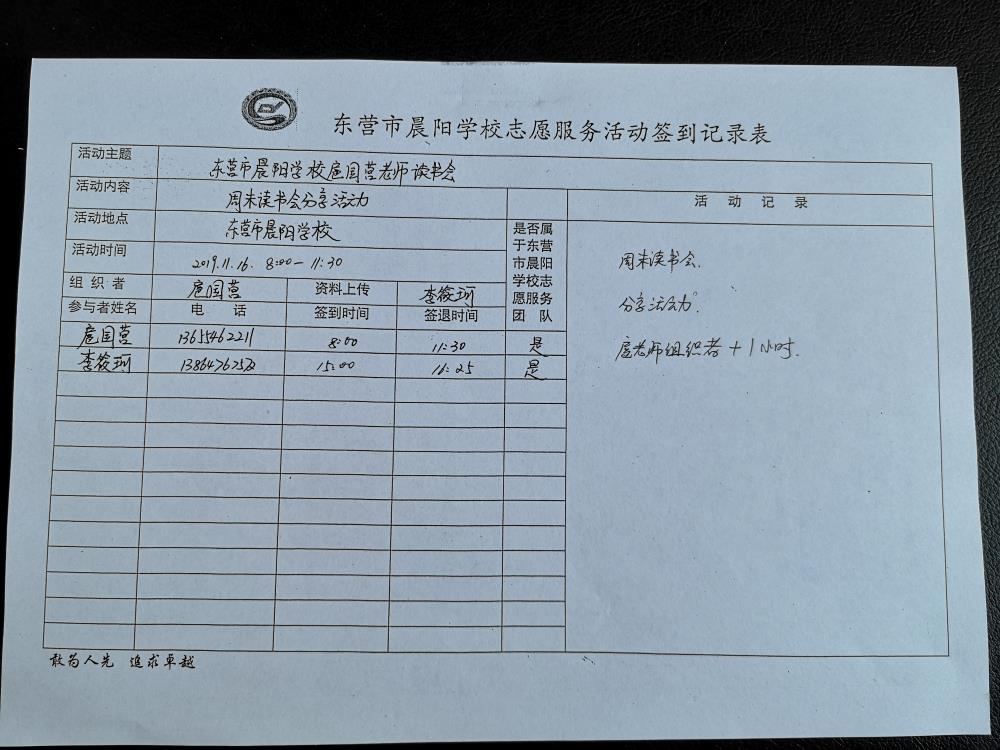 东营市晨阳学校志愿服务活动签到记录表
活动主题 东营市晨阳学校扈国营老师读书会
活动内容 周末读书会分享活动
活动地点 东营市晨阳学校
活动时间 2019.11.16. 8:00-11:30
组织者 扈国营 资料上传 李筱珂
参与者姓名 电话 签到时间 签退时间
是否属
于东营
市晨阳
学校志
愿服务
团队
扈国营 13655462211 8:00 11:30 是
李筱珂 15:00 16:25 是
活动记录
周末读书会.
分享活动.
扈老师组织者+1小时.
敢为人先 追求卓越